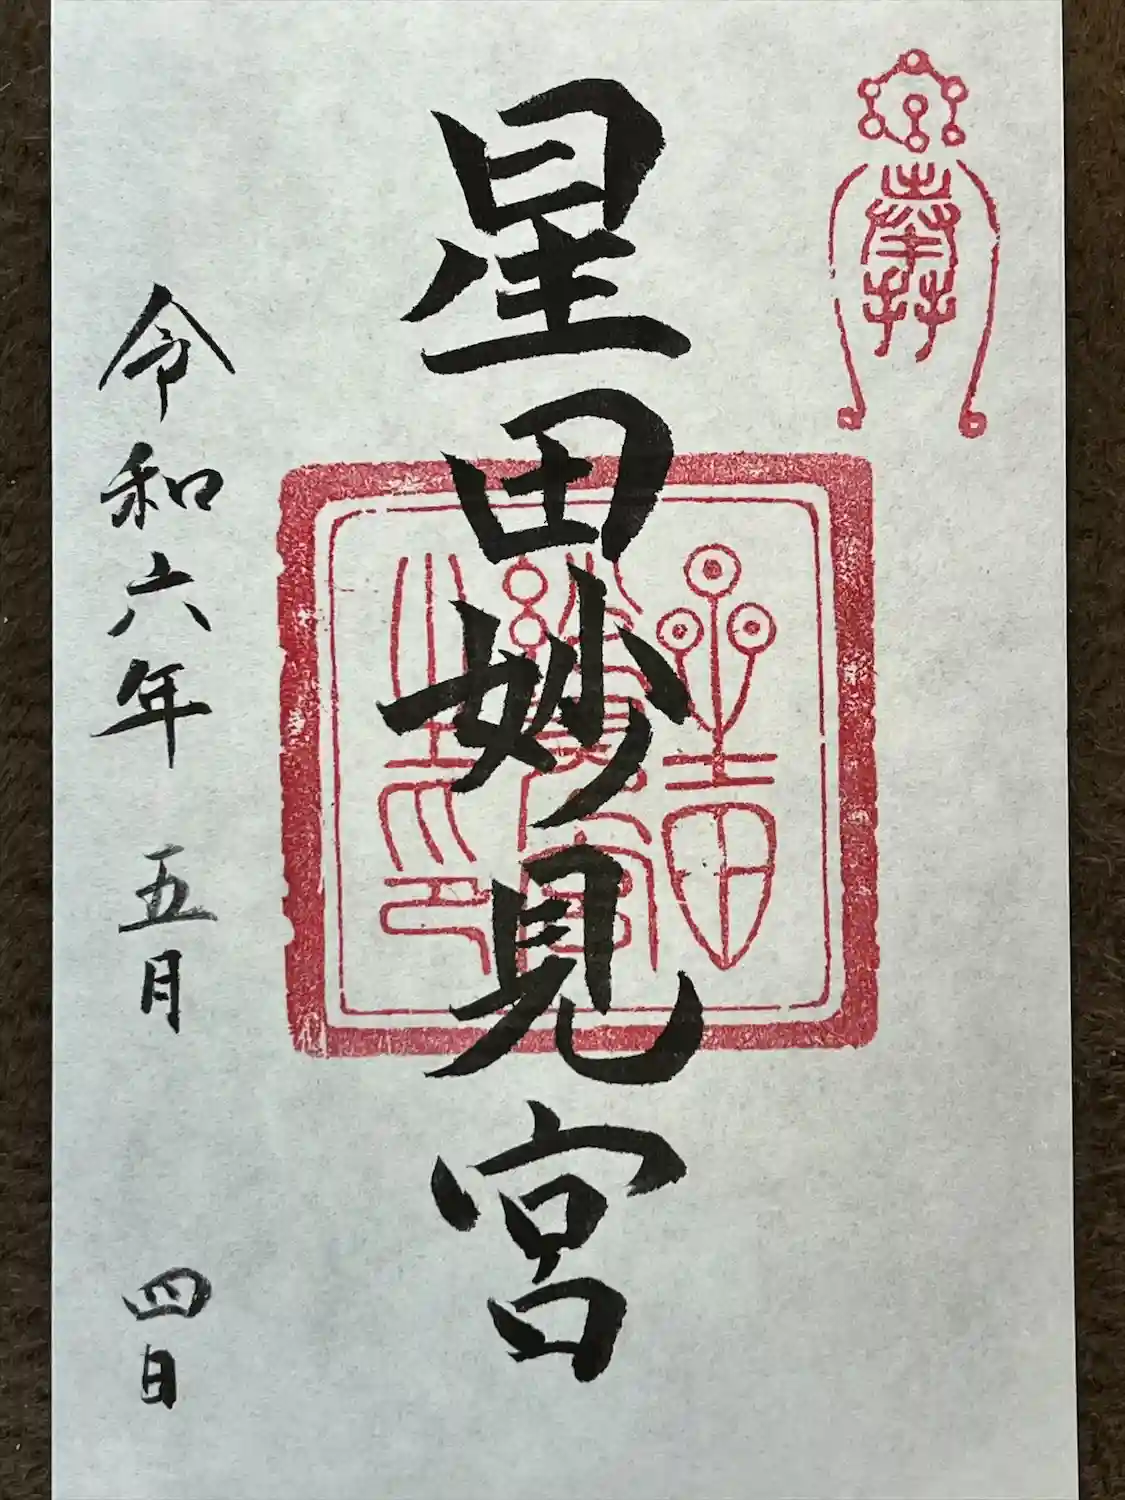 奉拝
星田妙見宮
星田妙見宮之印
令和六年 五月 四日